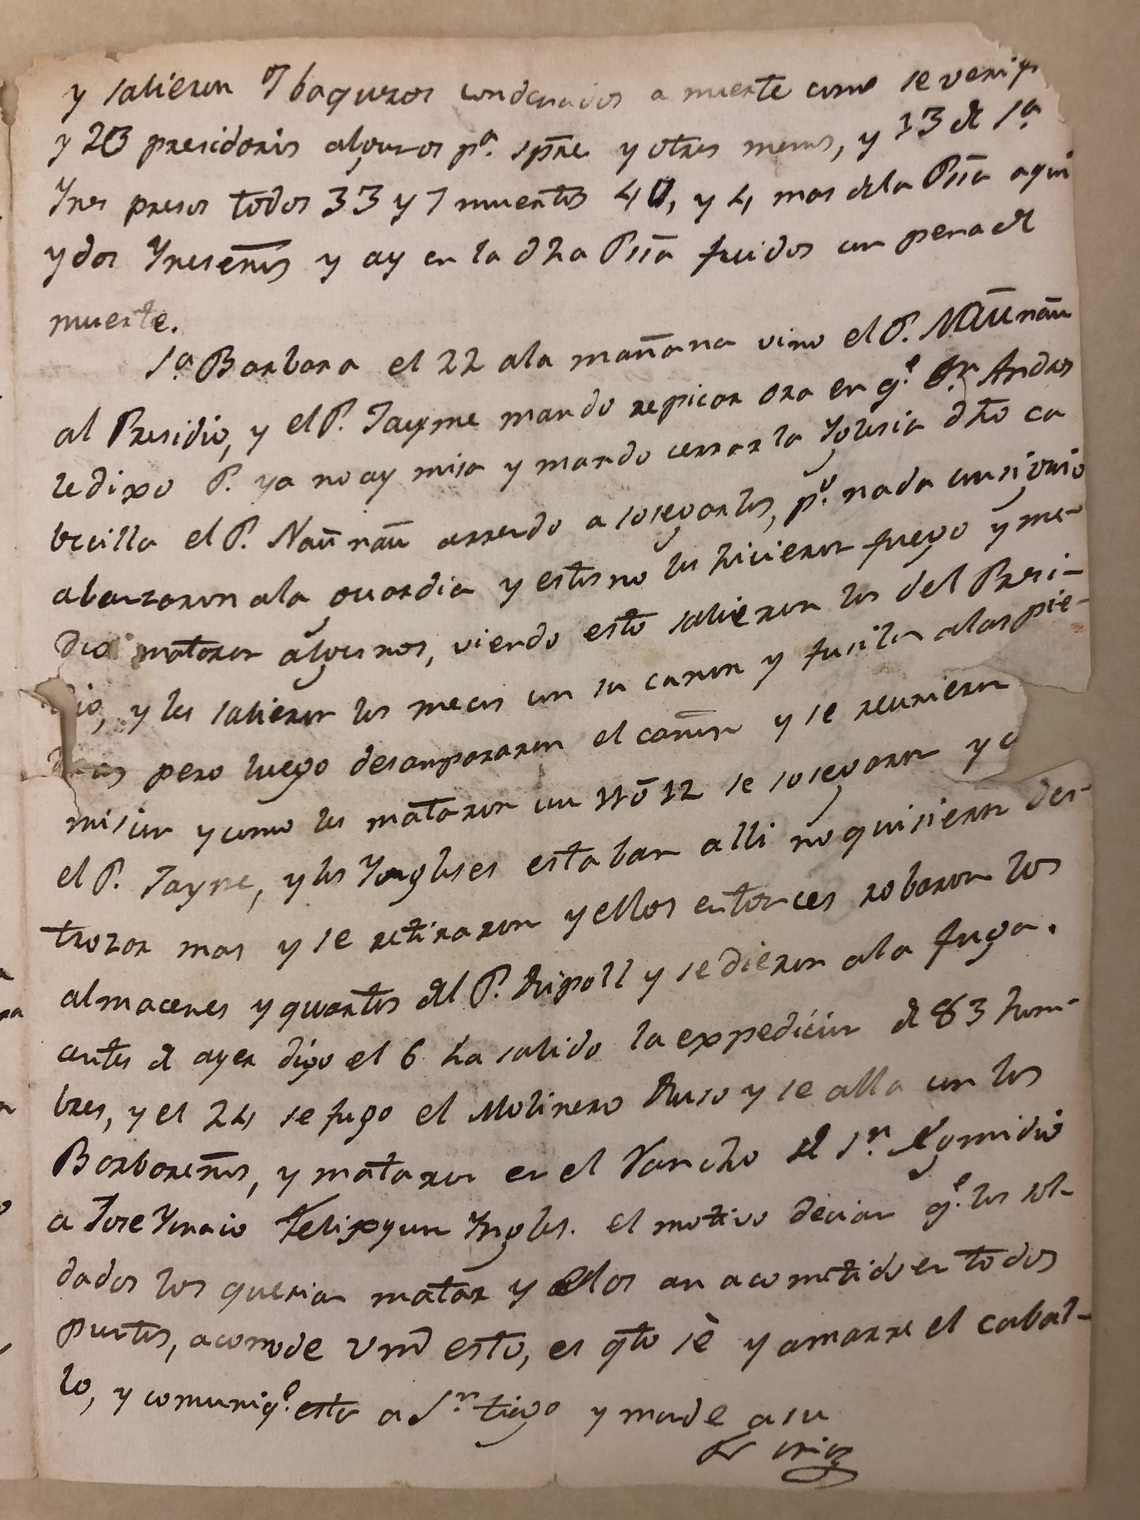 y salieron 7 baqueros condenados a muerte como se verifi
y 20 presidoris algunos pa. spre. y otros menos, y 13 de Sa
Ynes presos todos 33 y 7 muertos 40, y 4 mas dela Psia aqui
y dos Yneseños y ay en la dha Psia fuidos con pena de
muerte.
Sa Barbara el 22 ala mañana vino el P.
al Presidio, y el P. Jayme mando repicar ora en qe. Sn. Andres
le dixo P. ya no ay misa y mando cerrar la Yglesia dho ca
becilla el P. arrendo a sosegarles, po. nada consiguio
abanzaron ala guardia y estos no les hicieron fuego y me-
dio mataron algunos, viendo esto salieron los del Presi-
dio, y les salieron los mecos con su canon y fusiler alas pie-
dras pero luego desampararon el cañon y se reunieron
mision y como les mataron con 11 o 12 se sosegaron y
el P. Jayme, y los Yngleses estaban alli no quisieron des-
trozar mas y se retiraron y ellos entonces robaron los
almacenes y quartos del P. Ripoll y se dieron ala fuga.
antes de ayer digo el 6 ha salido la expedicion de 83 hom-
bres, y el 24 se fugo el Molinero Ruso y se alla con los
Barbareños, y mataron en el Rancho de Sn. Ygmidio
a Jose Ynacio Felix y un Yngles. el motivo decian qe. los sol-
dados los querian matar y ellos an acometido en todos
puntos, acomode Vmd esto, es qto sè y amarre el cabal-
lo, y comuniqe. esto a Sn. tiago y mande a su